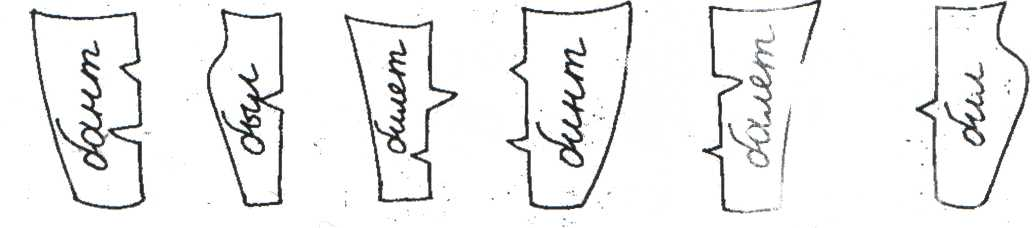 бант
был
билет
бинт
балет
бил